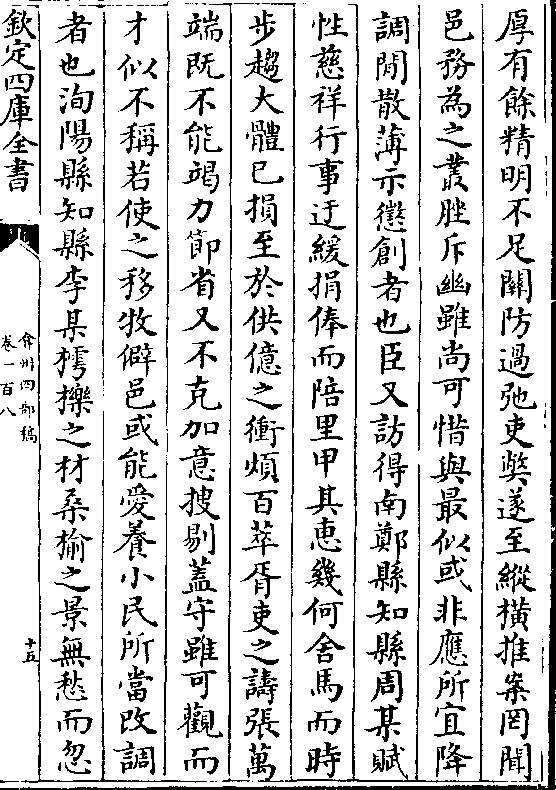 厚有餘精明不足關防過弛吏獘遂至縱橫推案罔聞
邑務為之叢脞斥幽雖尚可惜與最似或非應所宜降
調閒散薄示懲創者也臣又訪得南鄭縣知縣周某賦
性慈祥行事迂緩捐俸而陪里甲其惠幾何舍馬而時
步趨大體已損至於供億之衝煩百萃胥吏之譸張萬
端既不能竭力節省又不克加意搜剔蓋守雖可觀而
才似不稱若使之移牧僻邑或能愛養小民所當改調
者也洵陽縣知縣李某樗擽之材桑榆之景無愁而忽
欽定四庫全書
弇州四部稿
卷一百八
十五